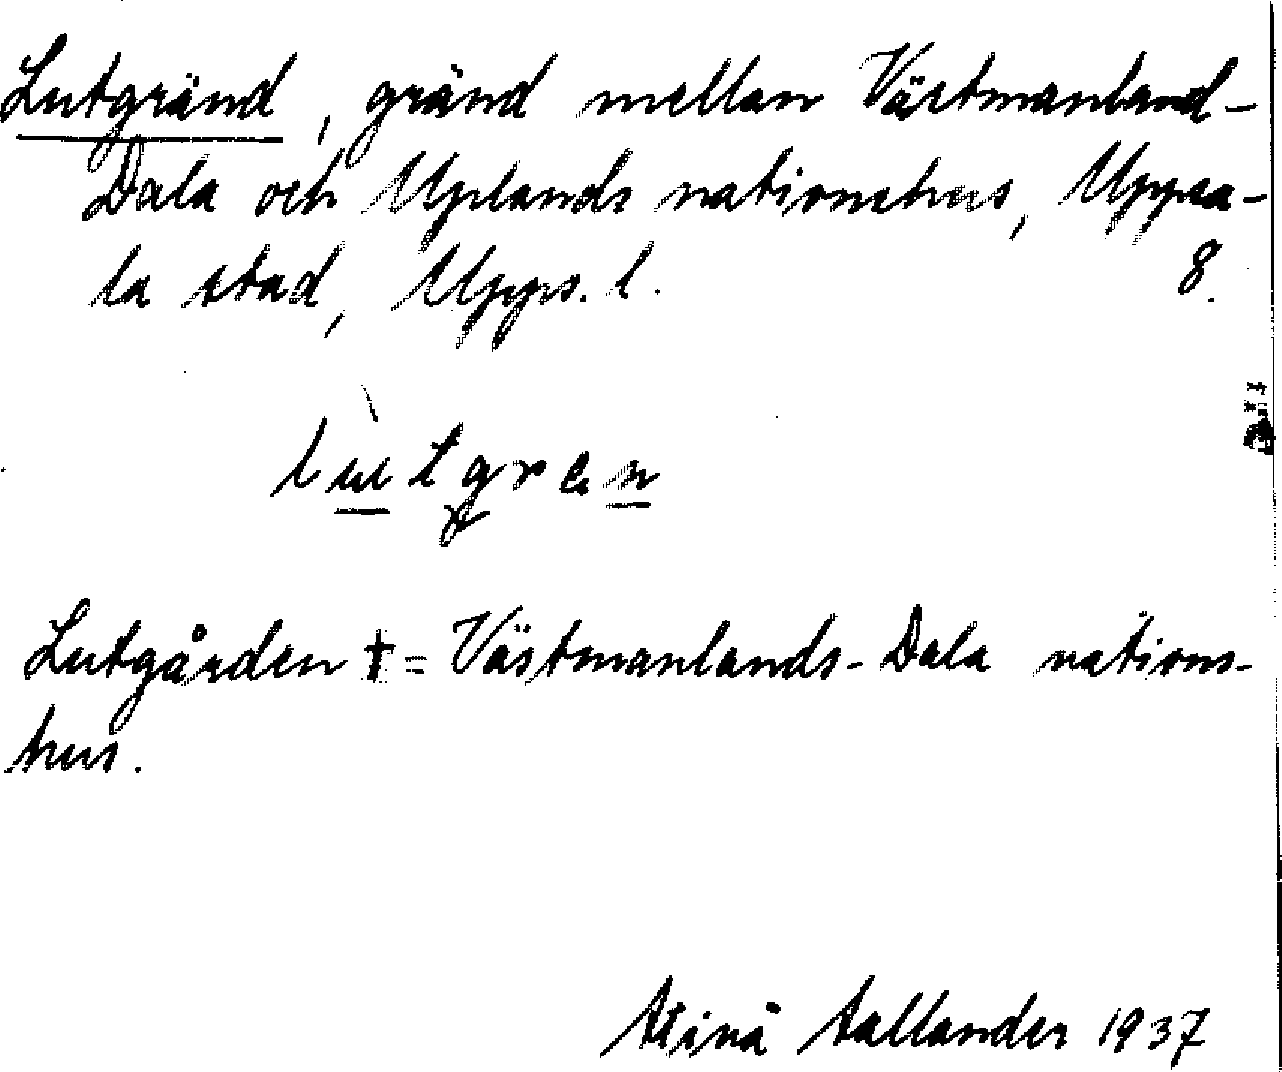 Lutgränd, gränd mellan Västmanland-
Dala och Uplands nationshus, Uppsa-
la stad, Upps. l. 8.
lutgren
Lutgården † = Västmanlands-Dala nations-
hus.
Sallander 1937